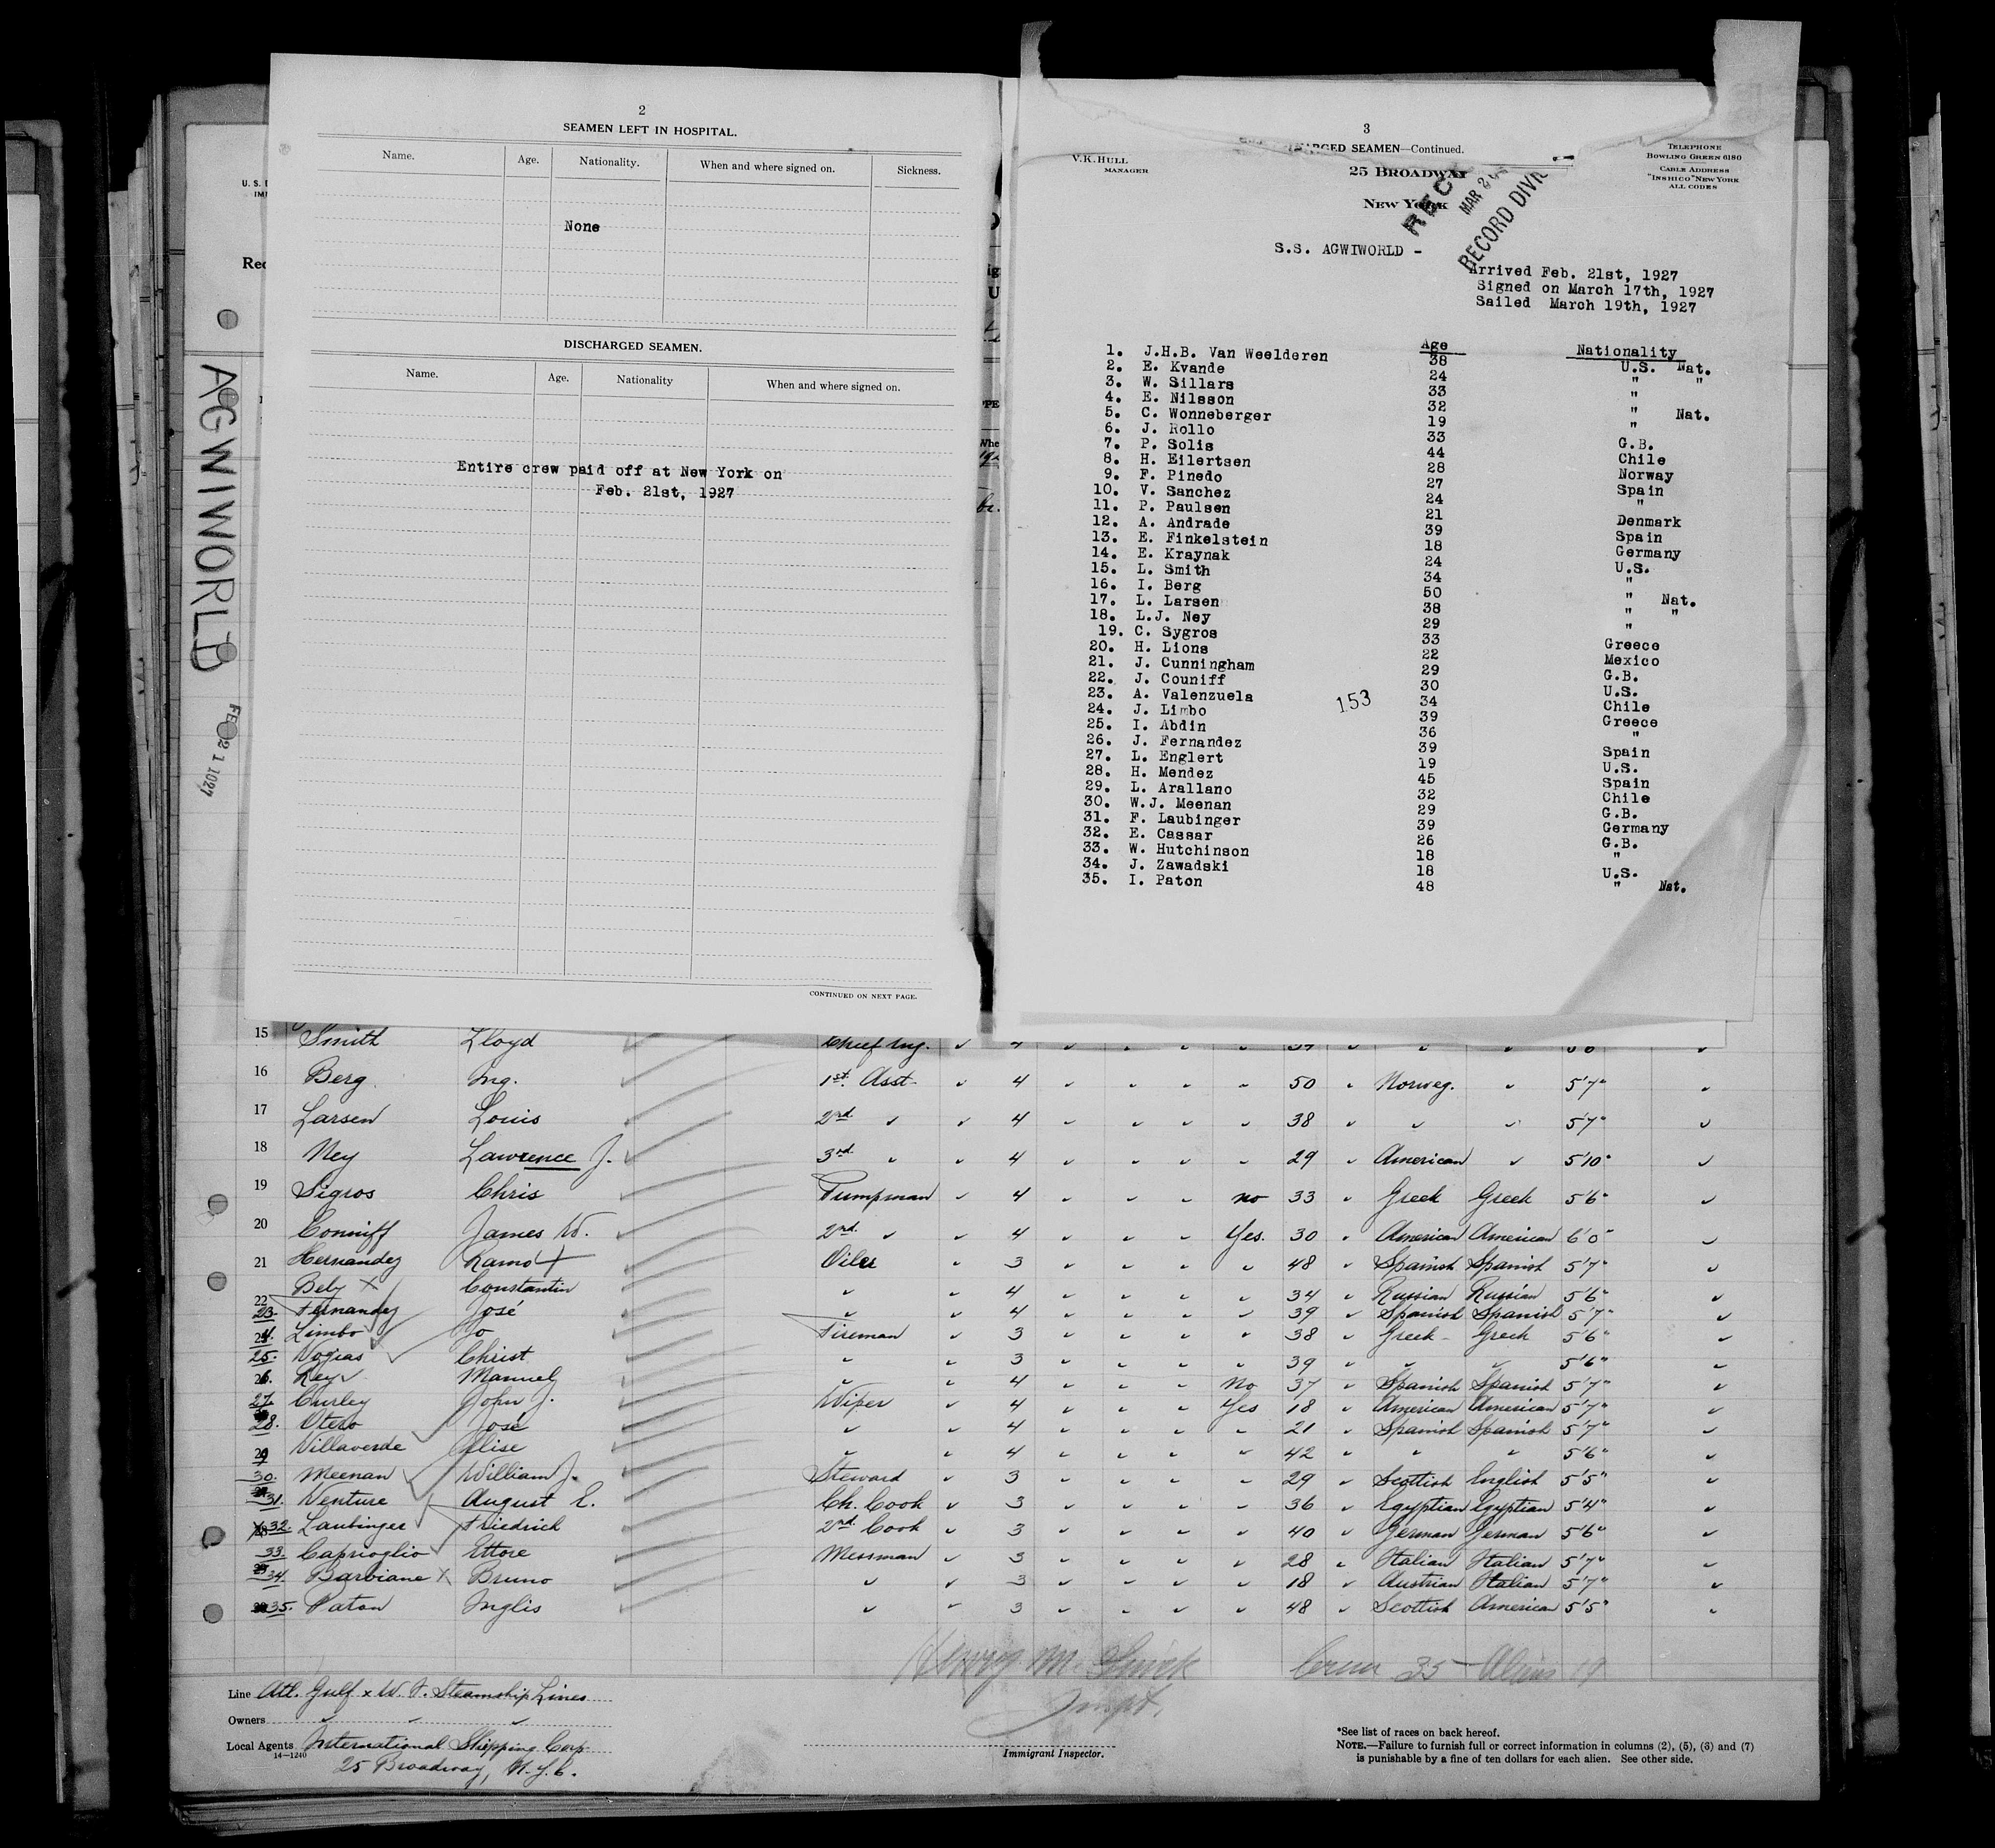 2
SEAMEN LEFT IN HOSPITAL.
Name. Age. Nationality. When and where signed on. Sickness.
None
DISCHARGED SEAMEN.
Name. Age. Nationality When and where signed on.
Entire crew paid off at New York on
Feb. 21st, 1927
CONTINUED ON NEXT PAGE.
AGWIWORLD
3
SEAMEN—Continued.
V.K. HULL
MANAGER
25 BROADWAY
NEW YORK
TELEPHONE
BOWLING GREEN 6180
CABLE ADDRESS
"INSHICO" NEW YORK
ALL CODES
RECORD DIV
S.S. AGWIWORLD -
Arrived Feb. 21st, 1927
Signed on March 17th, 1927
Sailed March 19th, 1927
Age Nationality
1. J.H.B. Van Weelderen 38 U.S. Nat.
2. E. Kvande 24 " "
3. W. Sillars 33 "
4. E. Nilsson 32 " Nat.
5. C. Wonneberger 19 "
6. J. Rollo 33 G.B.
7. P. Solis 44 Chile
8. H. Eilertsen 28 Norway
9. F. Pinedo 27 Spain
10. V. Sanchez 24 "
11. P. Paulsen 21 Denmark
12. A. Andrade 39 Spain
13. E. Finkelstein 18 Germany
14. E. Kraynak 24 U.S.
15. L. Smith 34 "
16. I. Berg 50 " Nat.
17. L. Larsen 38 " "
18. L.J. Ney 29 "
19. C. Sygros 33 Greece
20. H. Lions 22 Mexico
21. J. Cunningham 29 G.B.
22. J. Couniff 30 U.S.
23. A. Valenzuela 34 Chile
24. J. Limbo 39 Greece
25. I. Abdin 36 "
26. J. Fernandez 39 Spain
27. L. Englert 19 U.S.
28. H. Mendez 45 Spain
29. L. Arallano 32 Chile
30. W.J. Meenan 29 G.B.
31. F. Laubinger 39 Germany
32. E. Cassar 26 G.B.
33. W. Hutchinson 18 "
34. J. Zawadski 18 U.S.
35. I. Paton 48 " Nat.
153
15 Smith Lloyd Chief Eng. 4 34
16 Berg Ing. 1st. Asst. 4 50 Norweg. 5'7"
17 Larsen Louis 2nd 4 38 5'7"
18 Ney Lawrence J. 3rd 4 29 American 5'10"
19 Sigros Chris Pumpman 4 no 33 Greek Greek 5'6"
20 Conniff James W. 2nd 4 Yes. 30 American American 6'0"
21 Hernandez Ramo Oiler 3 48 Spanish Spanish 5'7"
22 Bely X Constantin 4 34 Russian Russian 5'6"
23. Fernandez José 4 39 Spanish Spanish 5'7"
24. Limbo Jo Fireman 3 38 Greek Greek 5'6"
25. Vogias Christ 3 39 5'6"
26. Rey Manuel 4 No 37 Spanish Spanish 5'7"
27 Curley John J. Wiper 4 Yes 18 American American 5'7"
28. Otero José 4 21 Spanish Spanish 5'7"
29 Villaverde Elise 4 42 5'6"
30. Meenan William J. Steward 3 29 Scottish English 5'5"
31. Venture August E. Ch. Cook 3 36 Egyptian Egyptian 5'4"
32. Laubinger Friedrich 2nd Cook 3 40 German German 5'6"
33. Caprioglio Ettore Messman 3 28 Italian Italian 5'7"
34. Barviane X Bruno 3 18 Austrian Italian 5'7"
35. Paton Inglis 3 48 Scottish American 5'5"
Crew 35 - Aliens 19
Inspt.
Line Atl. Gulf x W. I. Steamship Lines
Owners
Local Agents International Shipping Corp
14—1240
25 Broadway, N.Y.C.
Immigrant Inspector.
*See list of races on back hereof.
NOTE.—Failure to furnish full or correct information in columns (2), (5), (6) and (7)
is punishable by a fine of ten dollars for each alien. See other side.